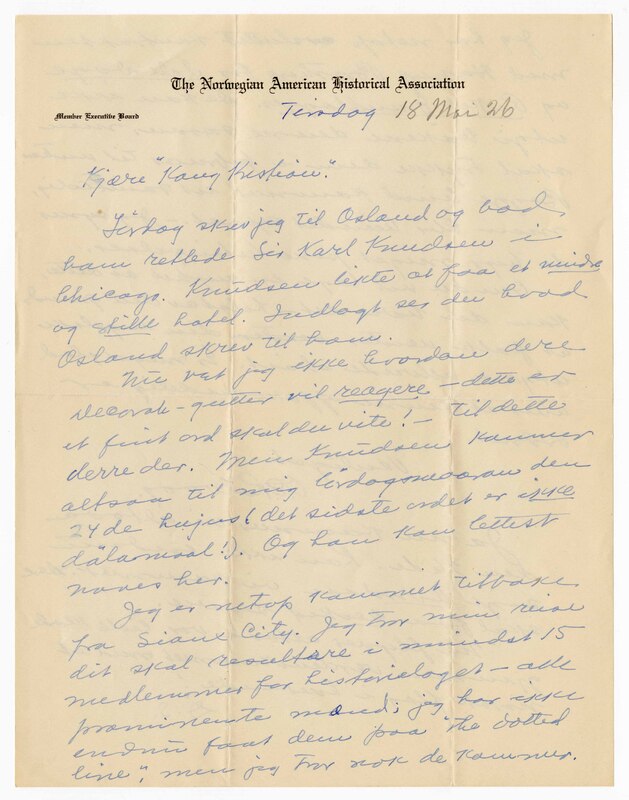 The Norwegian American Historical Association
Member Executive Board
Tirsdag 18 Mai 26
Kjære "Kong Kristian".
Lördag skrev jeg til Osland og bad
ham retlede Sir Karl Knudsen i
Chicago. Knudsen likte at faa et mindre
og stille hotel. Indlagt ser du hvad
Osland skrev til ham.
Nu vet jeg ikke hvordan dere
Decorah-gutter vil reagere - dette er
et fint ord skal du vite! - til dette
derre der. Men Knudsen kommer
altsaa til mig lördagsmorgran den
24de hujus (det sidste ordet er ikke
dälarmaal!). Og han kan lettest
naaes her.
Jeg er netop kommet tilbake
fra Sioux City. Jeg tror min reise
dit skal resultere i mindst 15
medlemmer for historielaget - alle
prominente mænd; jeg har ikke
endnu faat dem paa "the dotted
line", men jeg tror nok de kommer.